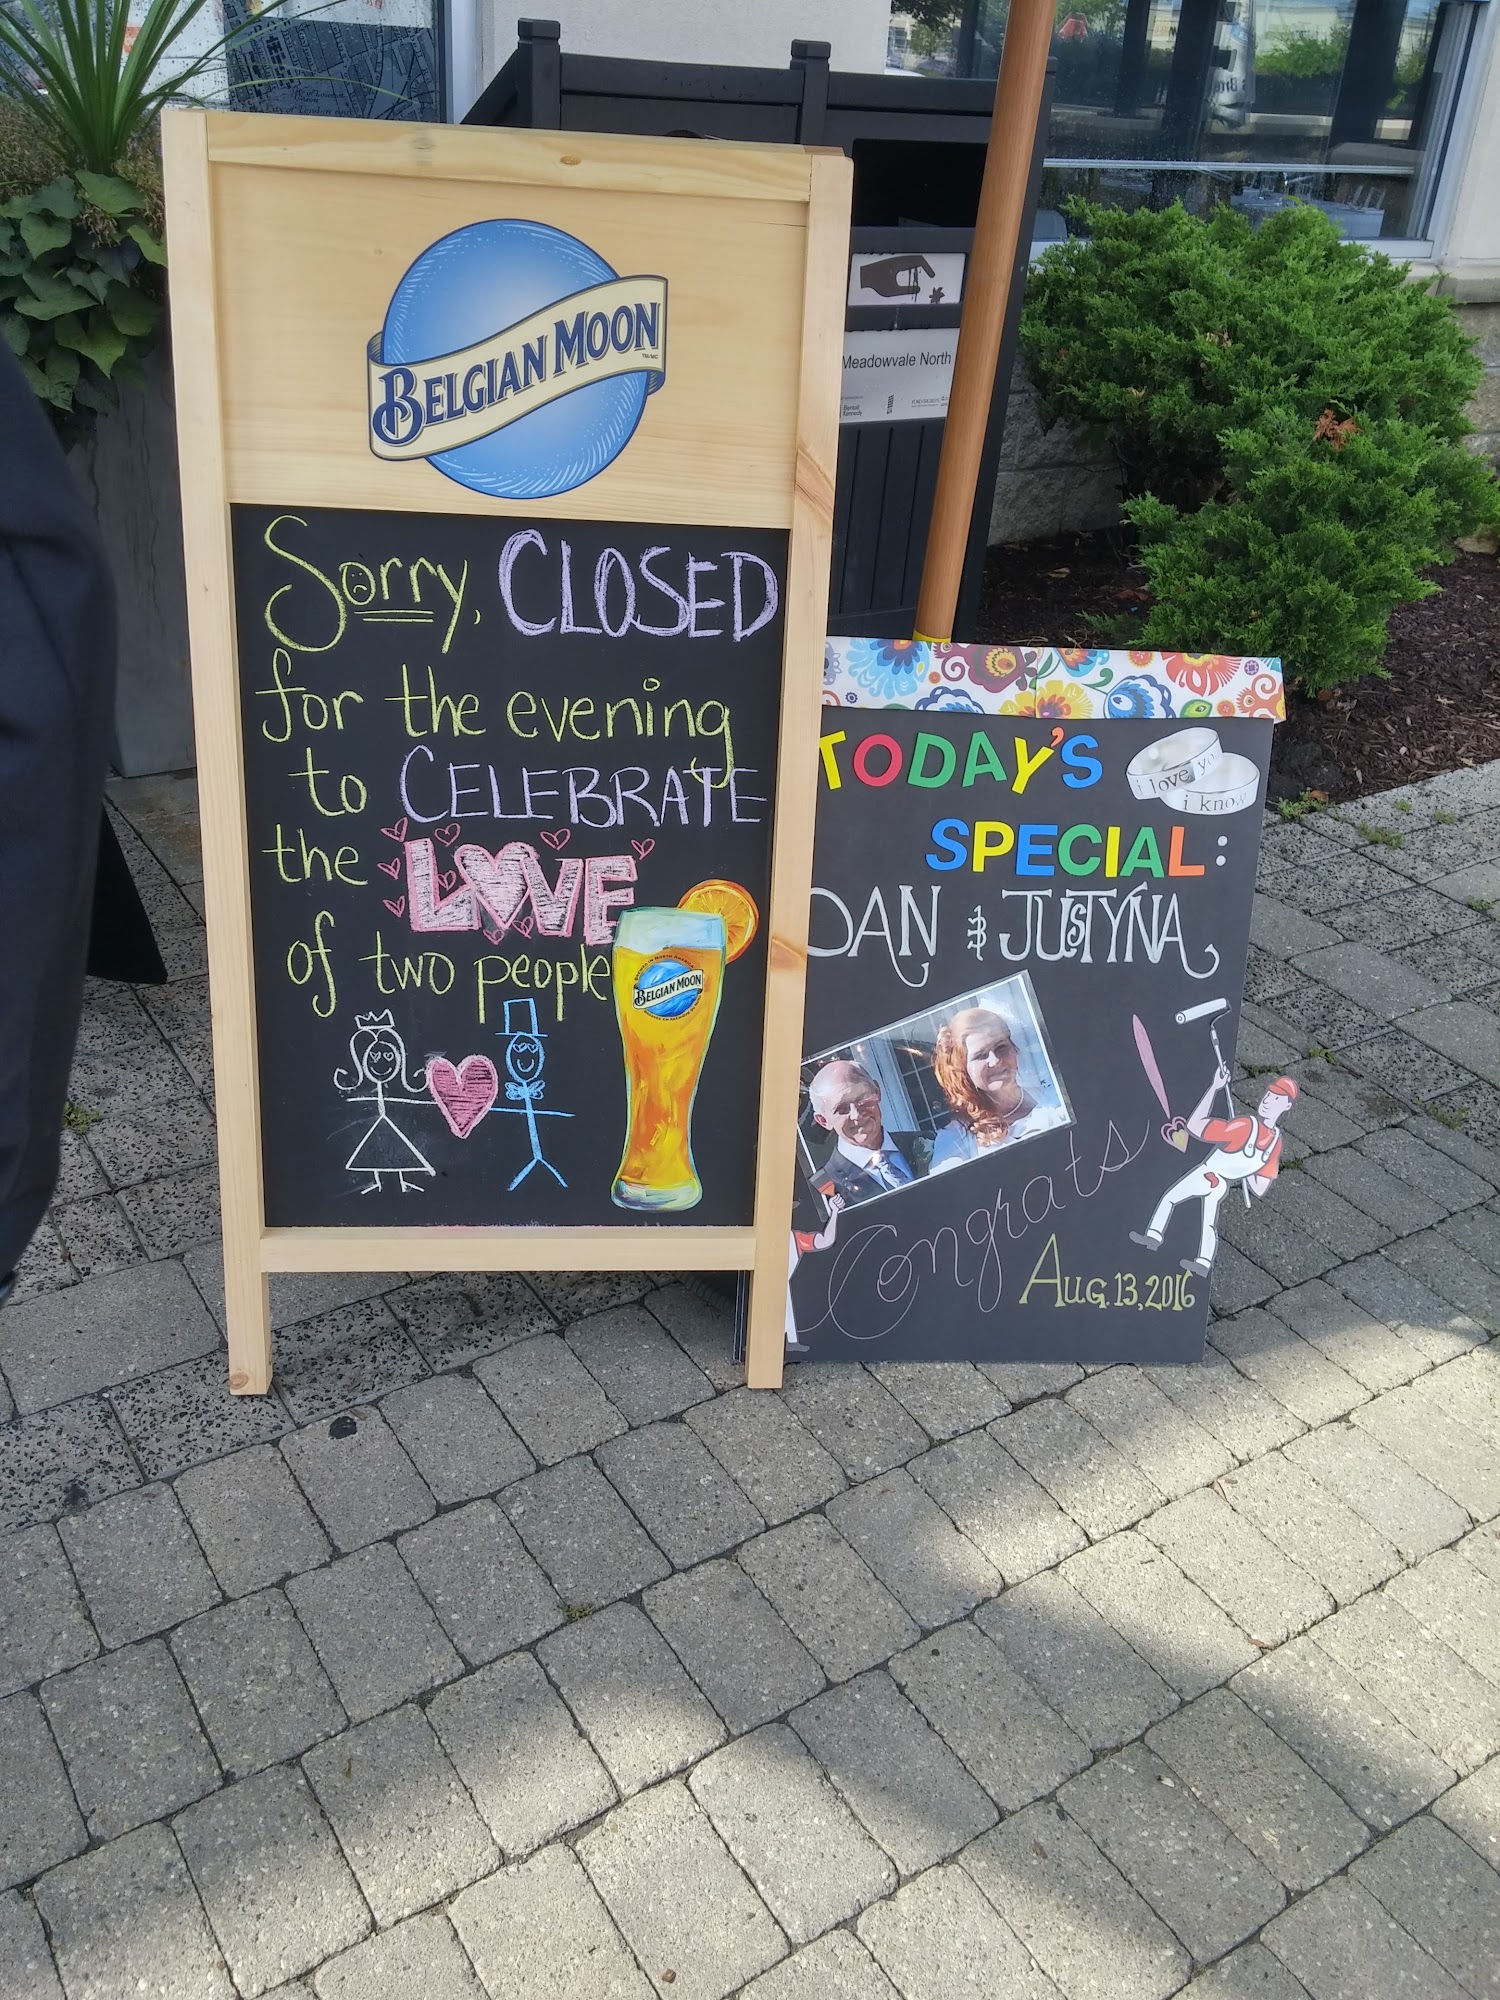 BELGIAN MOON
TM/MC
Sorry, CLOSED
for the evening
to CELEBRATE
the LOVE
of two people
BELGIAN MOON
Meadowvale North
Bentall
Kennedy
TODAY'S
SPECIAL:
i love yo
i know
DAN & JUSTYNA
Congrats
AUG. 13, 2016